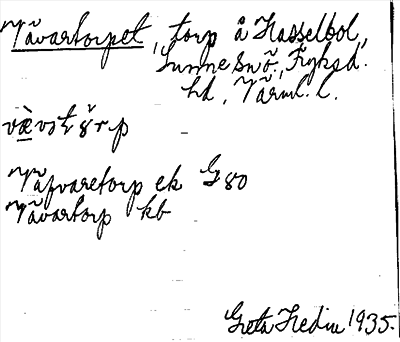 Vävartorpet, torp å Hasselbol,
Sunne snö., Fryksd.
hd, Värml. l.
Väfvaretorp ek G 80
Vävartorp kb
Greta Hedin 1935.